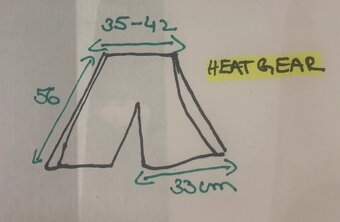 35-42
HEAT GEAR
56
33cm